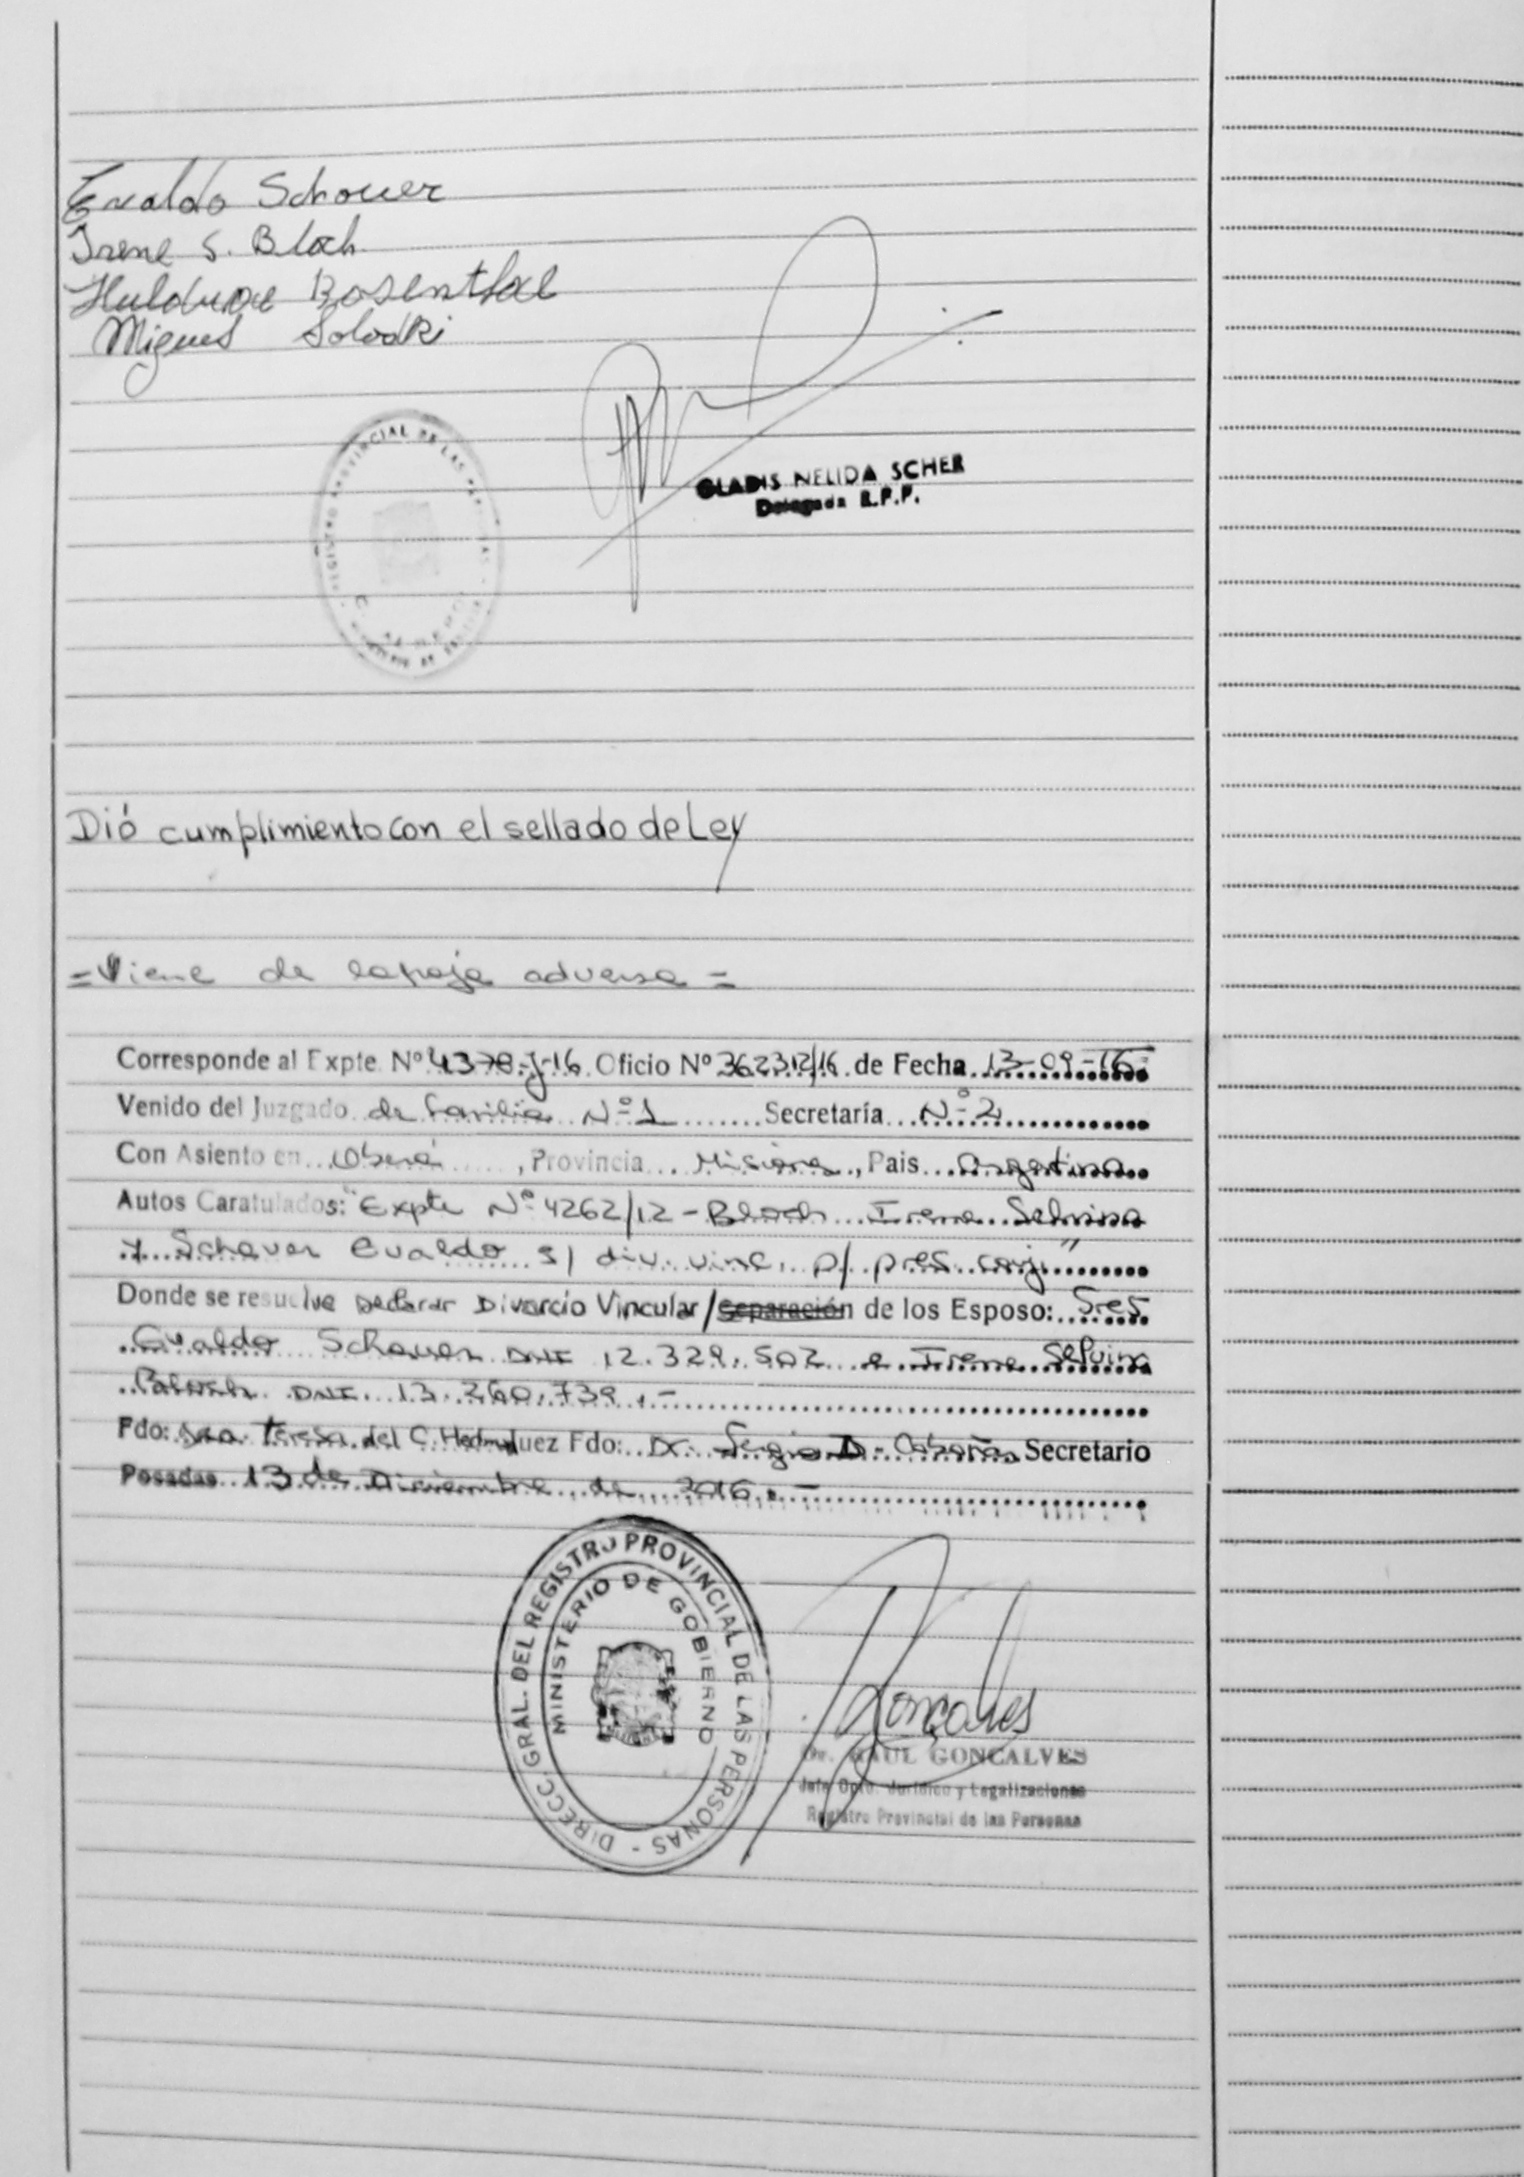 Evaldo Schouer
Irene S. Bloch
Rosenthal
Miguel Solodki
REGISTRO PROVINCIAL DE LAS PERSONAS
GLADIS NELIDA SCHER
Delegada R.P.P.
Dió cumplimiento con el sellado de Ley
=Viene de la hoja adversa=
Corresponde al Expte. Nº 4378-J-16 Oficio Nº 36231/16 de Fecha 13-09-16
Venido del Juzgado de familia Nº 1 Secretaría Nº 2
Con Asiento en Oberá, Provincia Misiones, Pais Argentina
Autos Caratulados: "Expte Nº 4262/12 - Bloch Irene Selvina
y Schauer Evaldo s/ div. vinc. p/ pres. conj"
Donde se resuelve Declarar Divorcio Vincular/Separación de los Esposo: Sres
Evaldo Schauer DNI 12.329.502 e Irene Selvina
Bloch DNI 13.260.739.-
Fdo: Dra. Teresa del C. Fdo: Dr. Sergio D. Secretario
Posadas 13 de Diciembre de 2016.-
DIRECC. GRAL. DEL REGISTRO PROVINCIAL DE LAS PERSONAS -
MINISTERIO DE GOBIERNO
Goncalves
Dr. RAUL GONCALVES
Jefe Dpto. Jurídico y Legalizaciones
Registro Provincial de las Personas